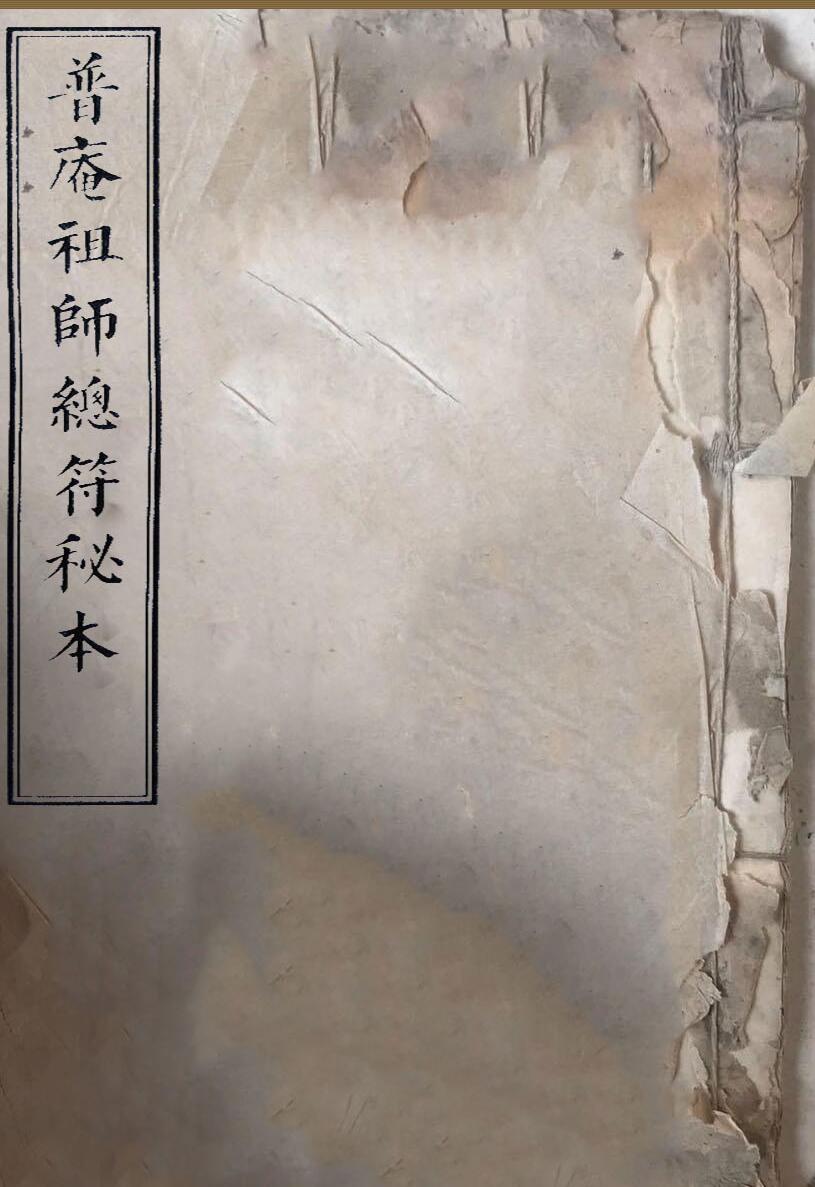 普庵祖師總符秘本